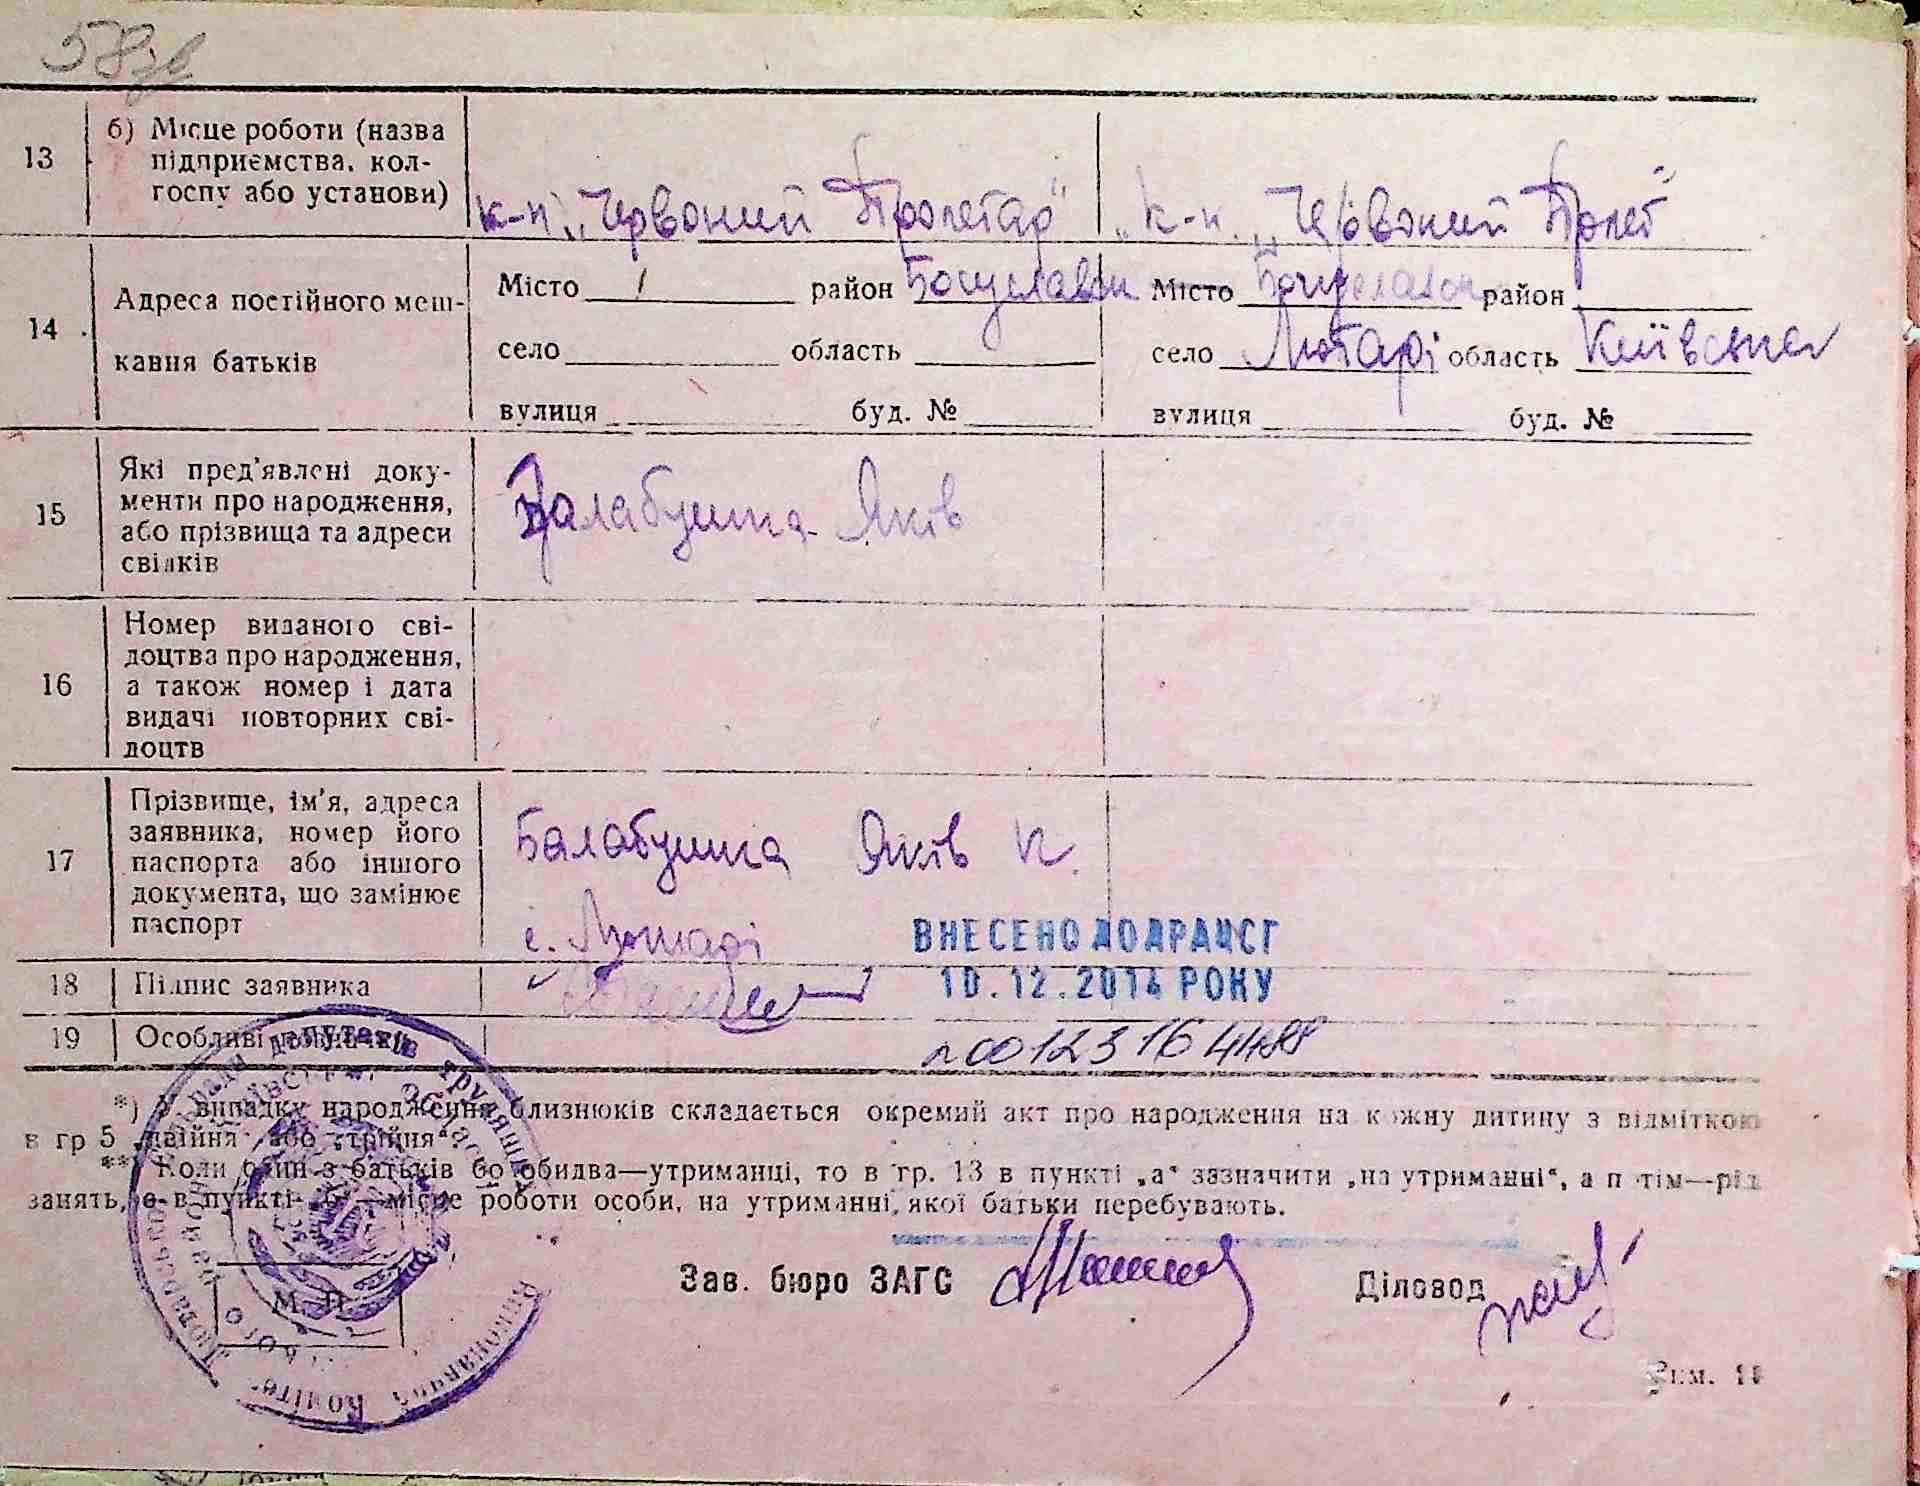 58зв
13 б) Місце роботи (назва
підприємства, кол-
госпу або установи)
к-п „Червоний Пролетар" „к-п. „Червоний Пролет"
14 Адреса постійного меш-
кання батьків
Місто район Богуславськ Місто Богуславськ район
село область село Лютарі область Київська
вулиця буд. № вулиця буд. №
15 Які пред'явлені доку-
менти про народження,
або прізвища та адреси
свідків
Балабушка Яків
16 Номер виданого сві-
доцтва про народження,
а також номер і дата
видачі повторних сві-
доцтв
17 Прізвище, ім'я, адреса
заявника, номер його
паспорта або іншого
документа, що замінює
паспорт
Балабушка Яків К.
с. Лютарі
ВНЕСЕНО ДО ДРАЦСГ
10.12.2014 РОКУ
18 Підпис заявника
19 Особливі
00123164488
*) У випадку народження близнюків складається окремий акт про народження на кожну дитину з відміткою
в гр 5 „двійня" або „трійня".
**) Коли один з батьків бо обидва—утриманці, то в гр. 13 в пункті „а" зазначити „на утриманні", а потім—рід
занять, а в пункті „б"—місце роботи особи, на утриманні, якої батьки перебувають.
Зав. бюро ЗАГС Діловод
М. П.